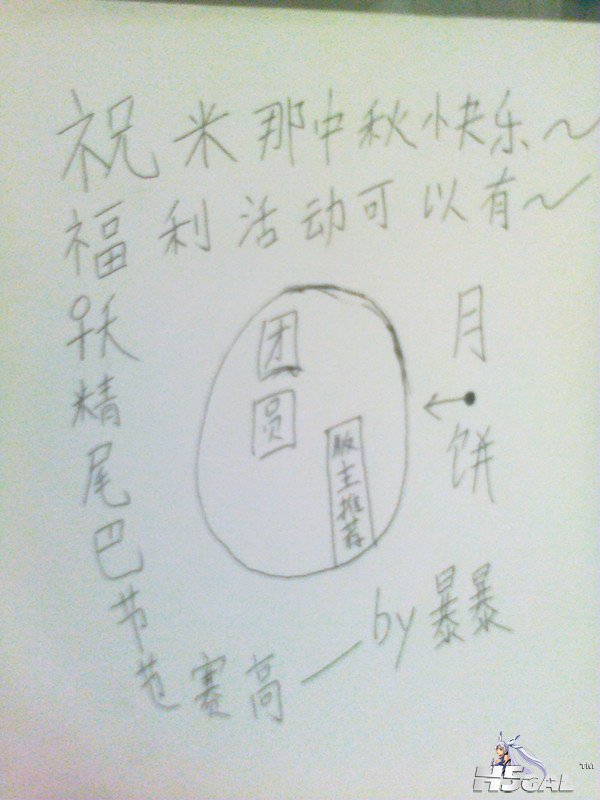 祝米那中秋快乐~
福利活动可以有~
妖精尾巴节节赛高——by暴暴
团圆
版主推荐
月饼
HSGAL™